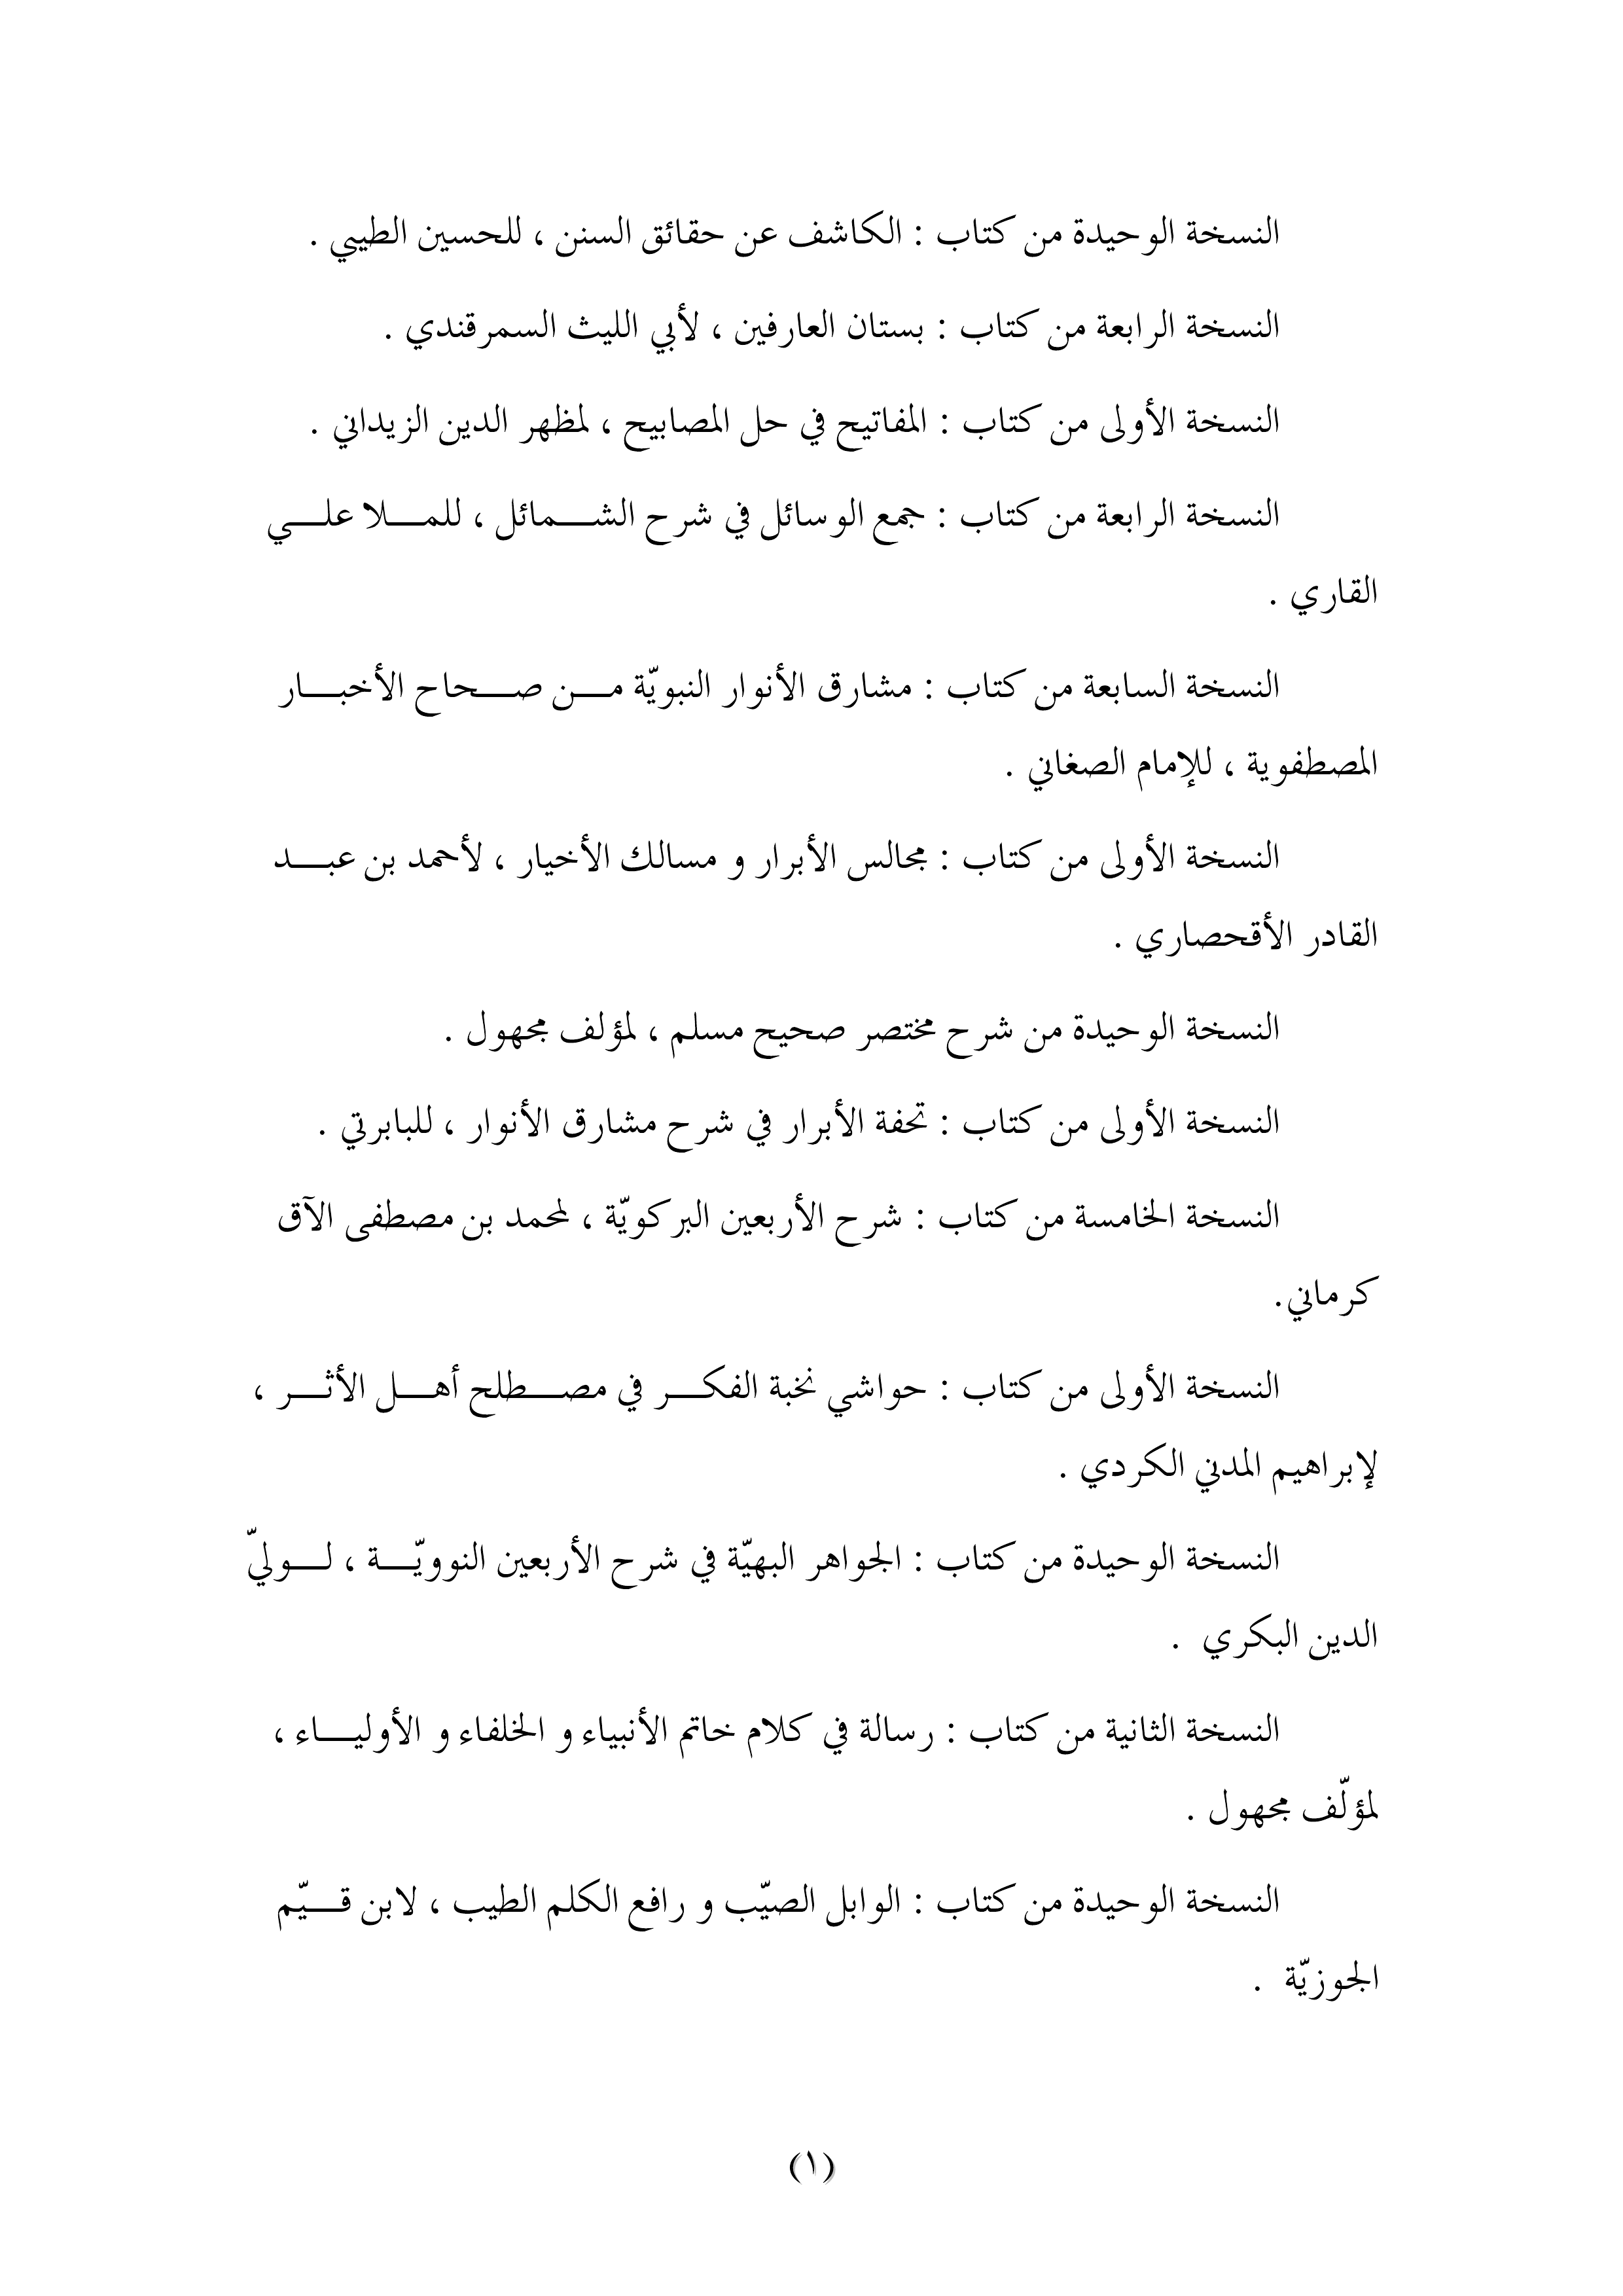 النسخة الوحيدة من كتاب : الكاشف عن حقائق السنن ، للحسين الطيبي .
النسخة الرابعة من كتاب : بستان العارفين ، لأبي الليث السمرقندي .
النسخة الأولى من كتاب : المفاتيح في حل المصابيح ، لمظهر الدين الزيداني .
النسخة الرابعة من كتاب : جمع الوسائل في شرح الشمائل ، للملا علي
القاري .
النسخة السابعة من كتاب : مشارق الأنوار النبويّة من صحاح الأخبار
المصطفوية ، للإمام الصغاني .
النسخة الأولى من كتاب : مجالس الأبرار و مسالك الأخيار ، لأحمد بن عبد
القادر الأقحصاري .
النسخة الوحيدة من شرح مختصر صحيح مسلم ، لمؤلف مجهول .
النسخة الأولى من كتاب : تحفة الأبرار في شرح مشارق الأنوار ، للبابرتي .
النسخة الخامسة من كتاب : شرح الأربعين البركويّة ، لمحمد بن مصطفى الآق
كرماني.
النسخة الأولى من كتاب : حواشي نخبة الفكر في مصطلح أهل الأثر ،
لإبراهيم المدني الكردي .
النسخة الوحيدة من كتاب : الجواهر البهيّة في شرح الأربعين النوويّة ، لوليّ
الدين البكري .
النسخة الثانية من كتاب : رسالة في كلام خاتم الأنبياء و الخلفاء و الأولياء ،
لمؤلّف مجهول .
النسخة الوحيدة من كتاب : الوابل الصيّب و رافع الكلم الطيب ، لابن قيّم
الجوزيّة .
(١)